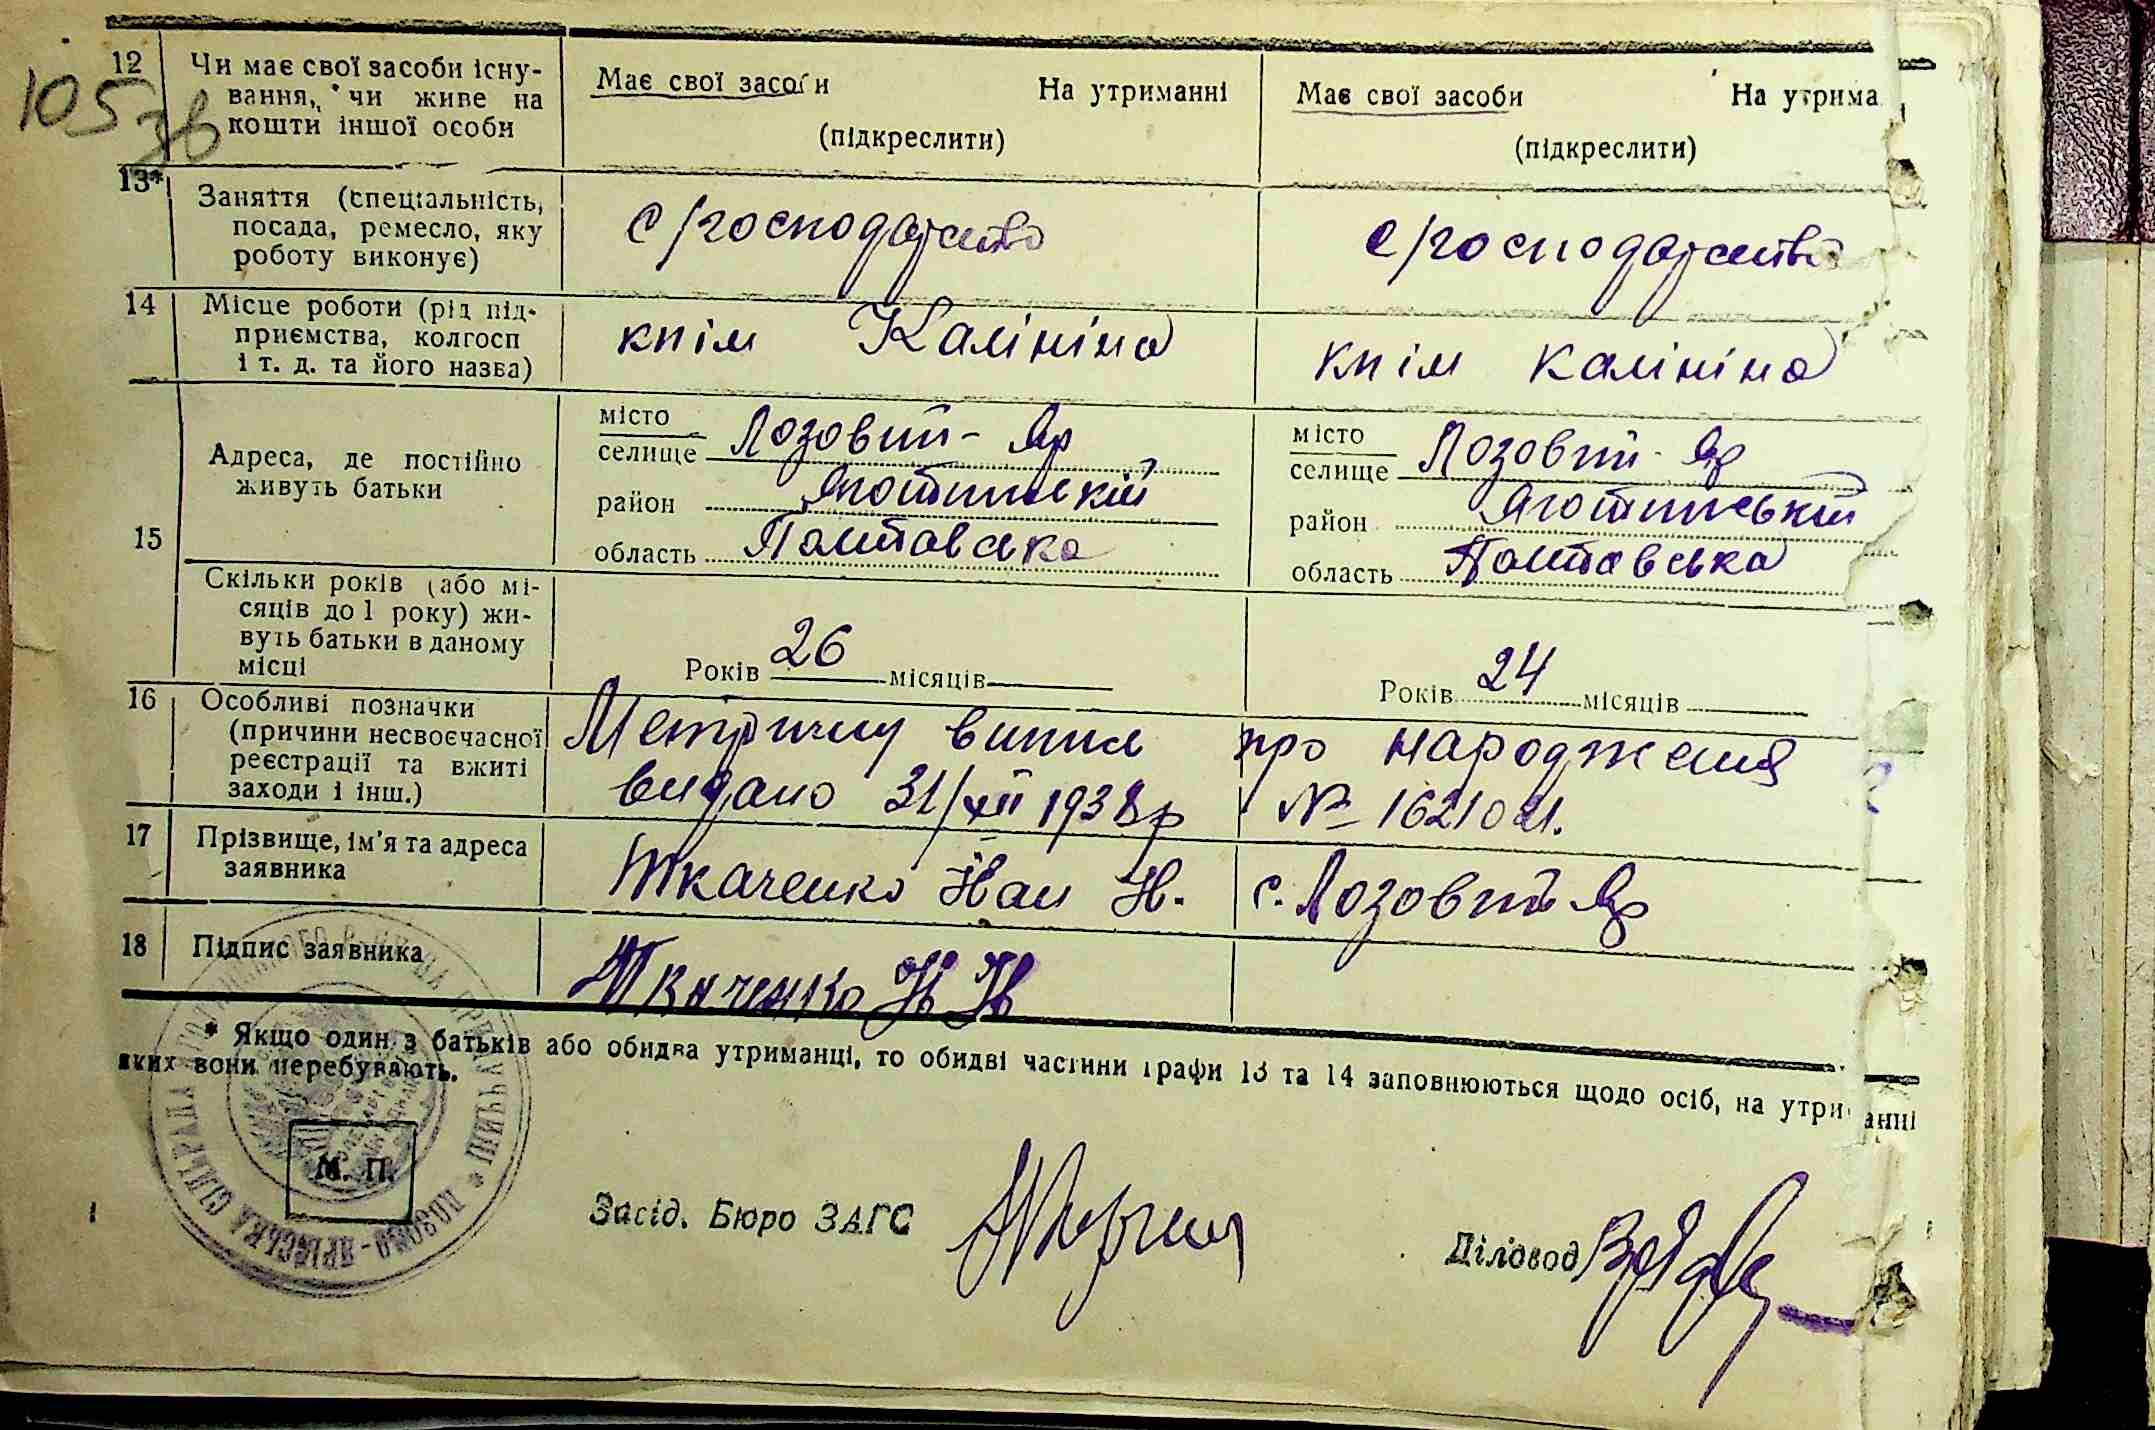 105 зв
12 Чи має свої засоби існу-
вання, чи живе на
кошти іншої особи
Має свої засоби На утриманні
(підкреслити)
Має свої засоби На утрима
(підкреслити)
13* Заняття (спеціальність,
посада, ремесло, яку
роботу виконує)
с/господарство
с/господарство
14 Місце роботи (рід під-
приємства, колгосп
і т. д. та його назва)
кпім Калініна
кпім Калініна
15 Адреса, де постійно
живуть батьки
місто
селище Лозовий-Яр
район Яготинський
область Полтавська
місто
селище Лозовий-Яр
район Яготинський
область Полтавська
Скільки років (або мі-
сяців до 1 року) жи-
вуть батьки в даному
місці
Років 26 місяців
Років 24 місяців
16 Особливі позначки
(причини несвоєчасної
реєстрації та вжиті
заходи і інш.)
Метричну випис про народження
видано 31/XII 1938р № 16210
17 Прізвище, ім'я та адреса
заявника
Ткаченко Іван І. с. Лозовий Яр
18 Підпис заявника
Ткаченко І І
* Якщо один з батьків або обидва утриманці, то обидві частини графи 13 та 14 заповнюються щодо осіб, на утриманні
яких вони перебувають.
М. П.
Засід. Бюро ЗАГС
Діловод